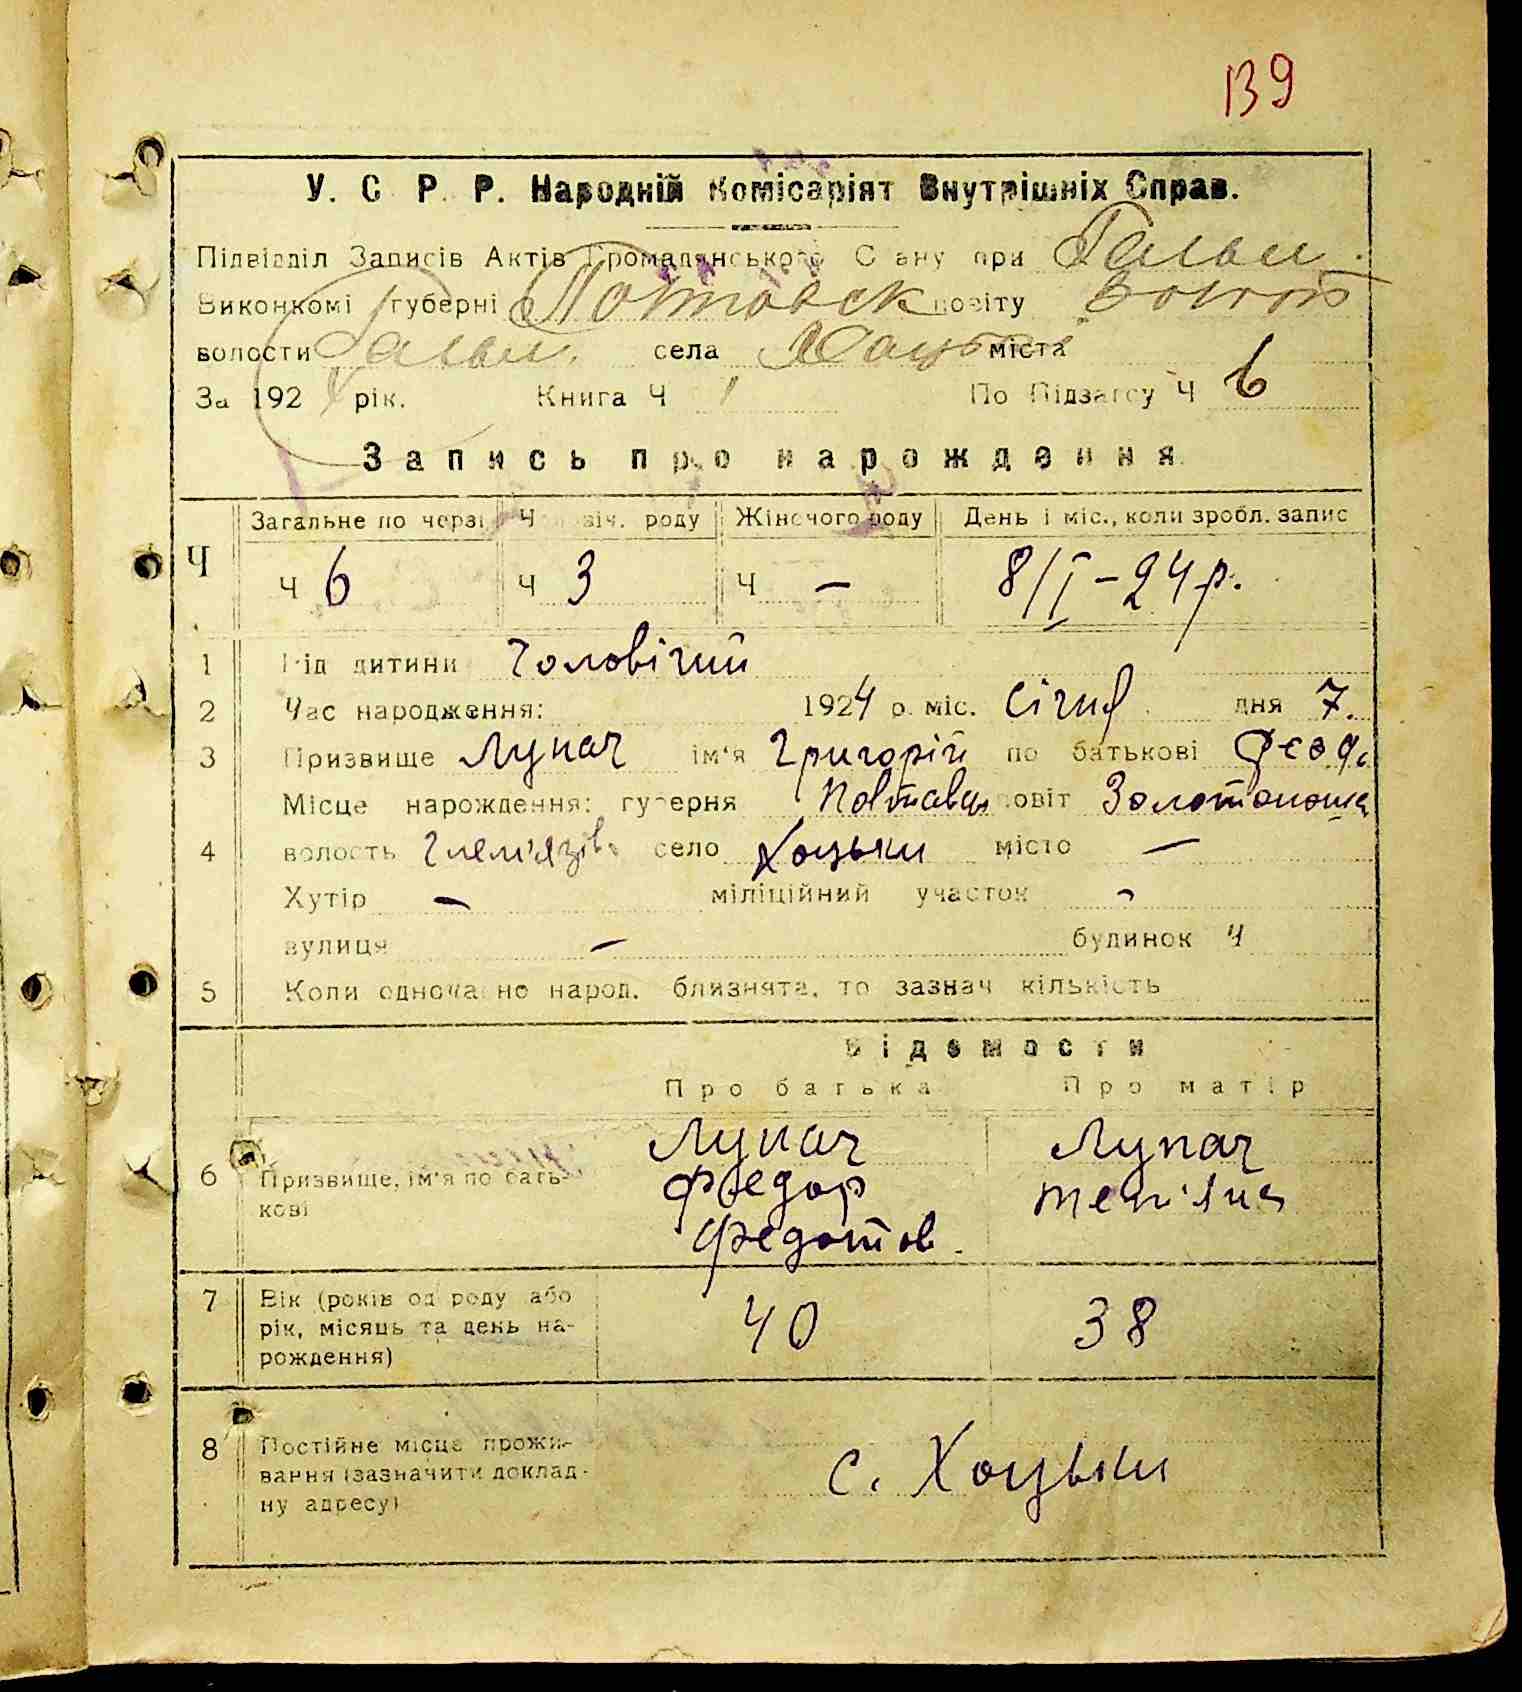 139
У. С. Р. Р. Народній Комісаріят Внутрішніх Справ.
Підвідділ Записів Актів Громадянського Стану при
Виконкомі губерні Полтавск повіту Золотон
волости села Хоцьки міста
За 1924 рік. Книга Ч 1 По Підзагсу Ч 6
Запись про нарождення
Ч Загальне по черзі Чоловіч. роду Жіночого роду День і міс., коли зробл. запис
Ч 6 Ч 3 Ч — 8/I – 24 р.
1 Рід дитини Чоловічий
2 Час народження: 1924 р. міс. Січня дня 7.
3 Призвище Лупач ім'я Григорій по батькові Фед.
Місце нарождення: губерня Полтавська повіт Золотоноша
4 волость Гельм'язів. село Хоцьки місто —
Хутір — міліційний участок -
вулиця — будинок Ч
5 Коли одночасно народ. близнята, то зазнач кількість
Відомости
Про батька Про матір
6 Призвище, ім'я по бать-
кові
Лупач Лупач
Федор Тетяна
Федотов.
7 Вік (років од роду або
рік, місяць та день на-
рождення)
40 38
8 Постійне місце прожи-
вання (зазначити доклад-
ну адресу)
с. Хоцьки